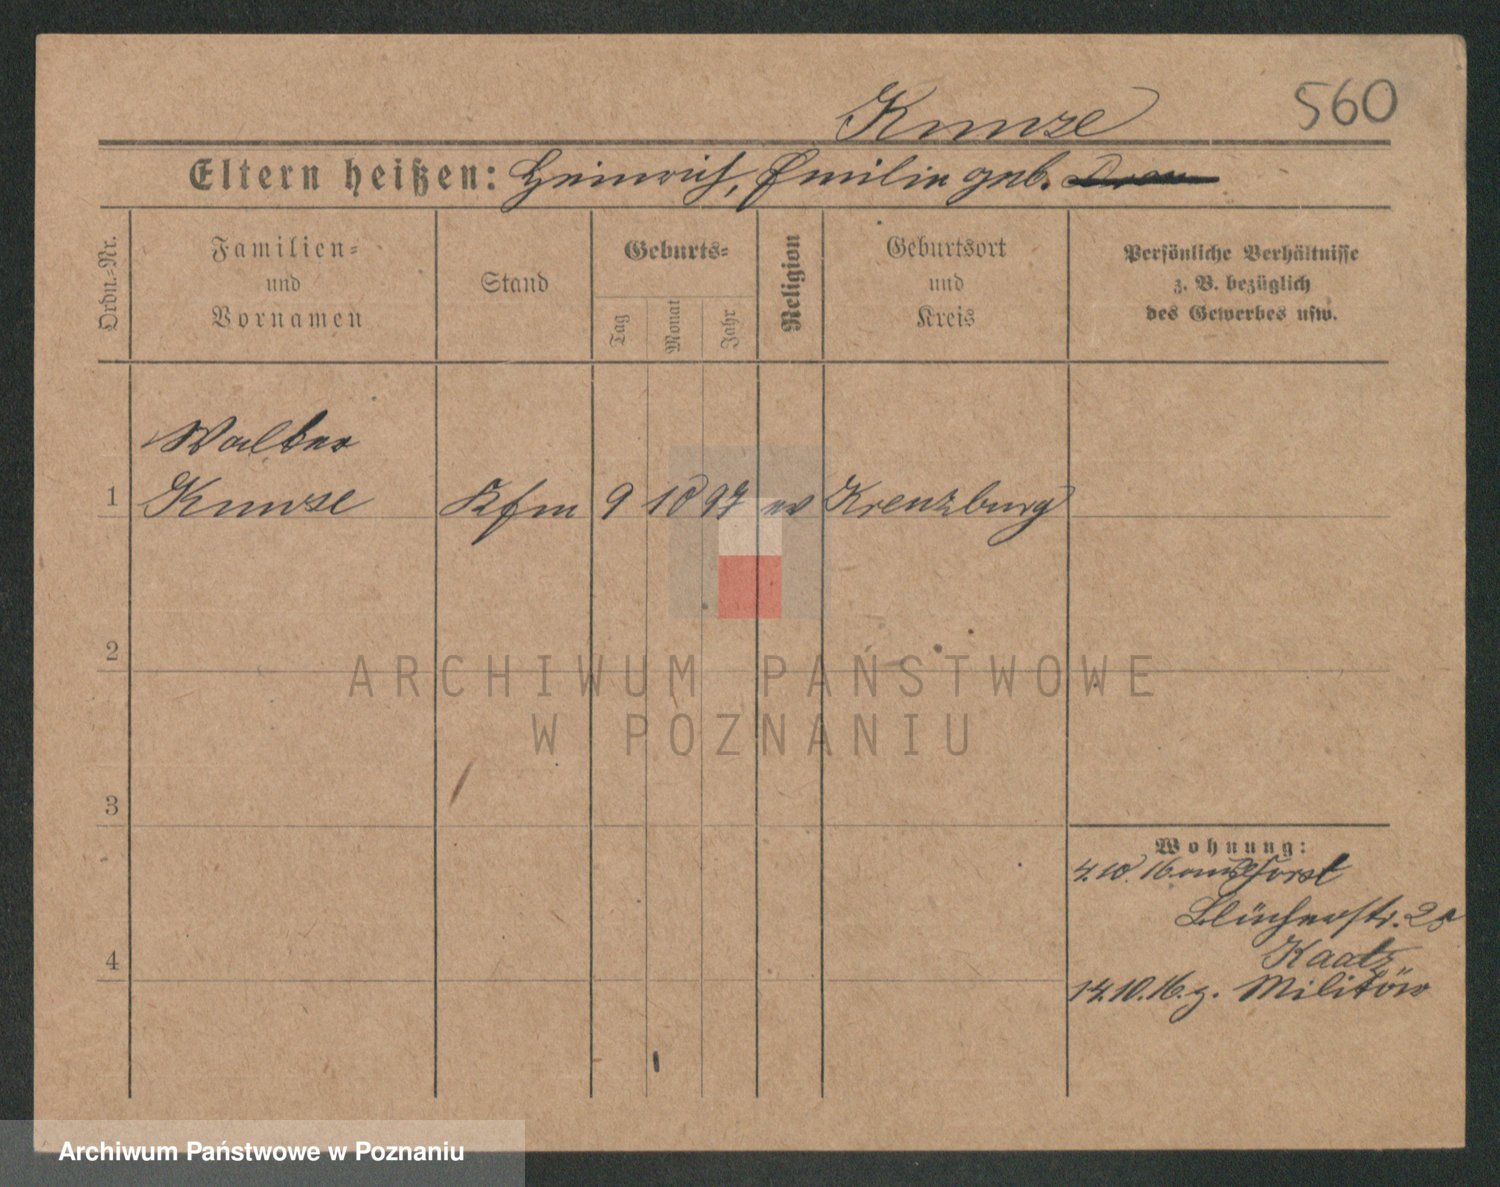 560
Kunze
Eltern heißen: Heinrich, Emilie geb.
Ordn.-Nr.
Familien-
und
Vornamen
Stand
Geburts-
Tag
Monat
Jahr
Religion
Geburtsort
und
Kreis
Persönliche Verhältnisse
z. B. bezüglich
des Gewerbes usw.
Walter
1 Kunze Kfm 9 10 97 ev Kreuzburg
2
ARCHIWUM PAŃSTWOWE
W POZNANIU
3
Wohnung:
4.10.16 aus Forst
Blücherstr. 28
Kaatz
4
14.10.16. z. Militär
Archiwum Państwowe w Poznaniu